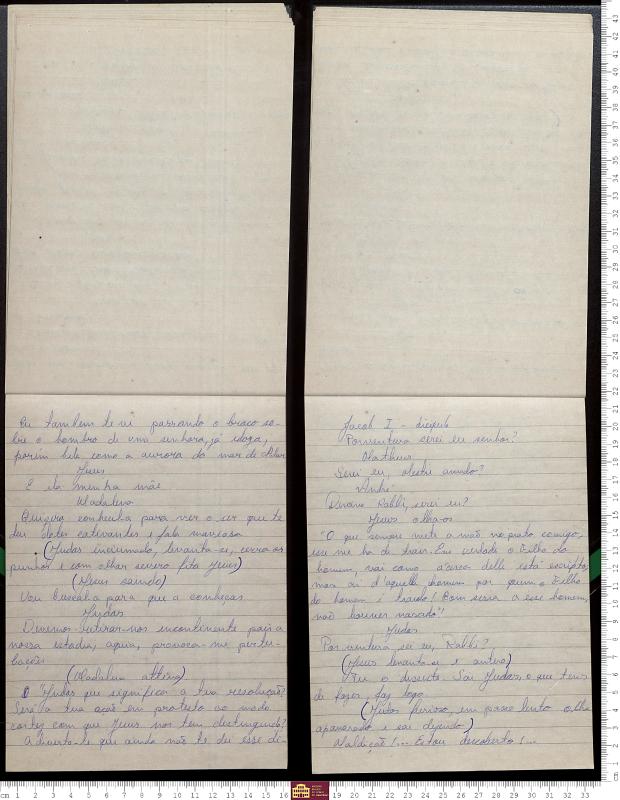 Eu tambem te vi passando o braço so-
bre o hombro de uma senhora, já idosa,
porém bela como a aurora do mar de
Jesus
É ela minha mãe
Madalena
Quizera conhecha para ver o ser que te
deu dotes cativantes e fala maviosa
(Judas incurumado, levanta-se, cerra os
punhos e com olhar severo fita Jesus)
(Jesus saindo)
Vou buscal-a para que a conheças
Judas
Devemos retirar-nos incontinente pois a
nossa estadia, aquia, provoca-me pertur-
bações
(Madalena altiva)
O' Judas que significa a tua resolução?
Será a tua ação em protesto ao modo
cortez com que Jesus nos tem distinguido?
Adverto-te que ainda não te dei esse di-
Jacob I - discipulo
Porventura serei eu senhor?
Matheus
Serei eu, Mestre amado?
André
Divino Rabbi, serei eu?
Jesus olha-os
"O que sempre mete a mão no prato comigo,
esse me ha de trair. Em verdade o Filho do
homem, vai como ácerca delle está escripto,
mas ai d'aquelle homem por quem o Filho
do homem é traido! Bom seria a esse homem,
não houver nascido"!
Judas
Porventura sou eu, Rabbi?
(Jesus levanta-se e)
Tu o disseste. Sai Judas, o que tens
de fazer, faz logo
(Judas furioso, em passo lento olha
apavorado e sai dizendo)
Maldição!... Estou descoberto!...